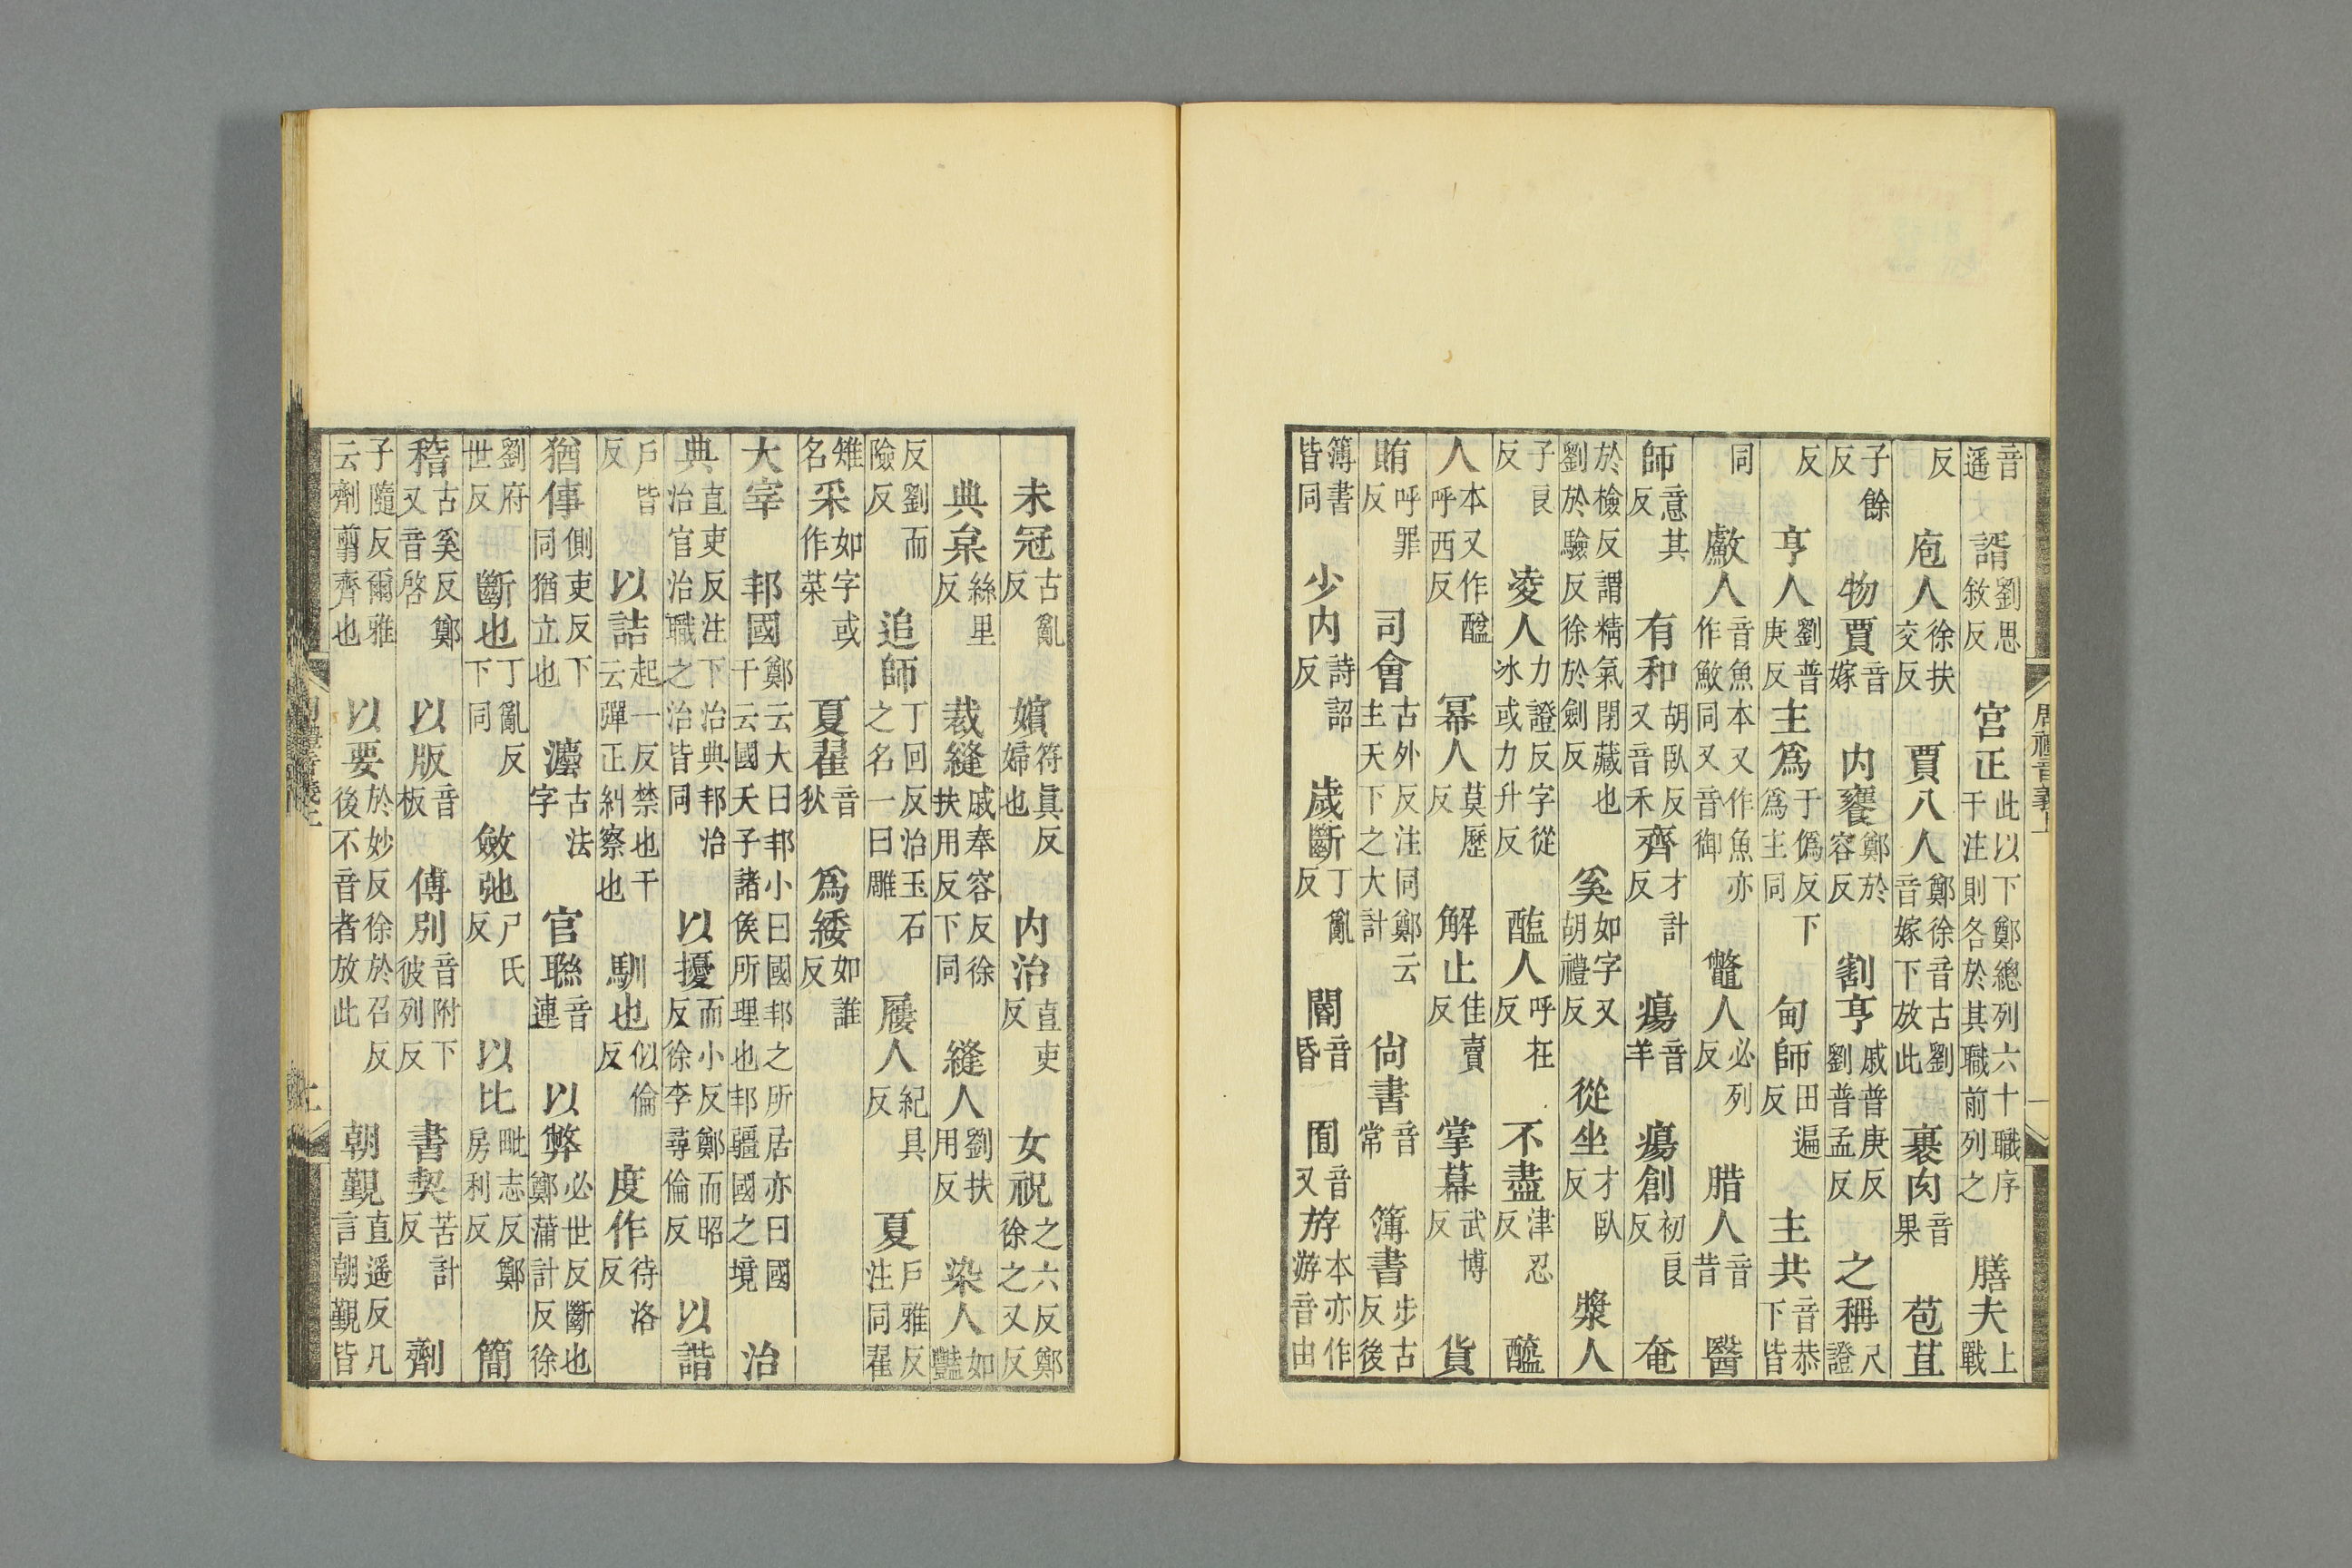 音遥 諝劉思敘反 宮正此以下鄭總列六十職序干注則各於其職前列之 膳夫上戰
反 庖人徐扶交反 賈八人鄭徐音古劉音嫁下放此 裹肉音果 苞苴
子餘反 物賈音嫁 内饔鄭於容反 割亨戚普庚反劉普孟反 之稱尺證
反 亨人劉普庚反 主爲于僞反下爲主同 甸師田遍反 主共音恭下皆
同 䱷人音魚本又作魚亦作䱷同又音御 鼈人必列反 腊人音昔 醫
師意其反 有和胡臥反又音禾 齊才計反 瘍音羊 瘍創初良反 奄
於檢反謂精氣閉藏也劉於驗反徐於劍反 奚如字又胡禮反 從坐才臥反 漿人
子良反 凌人力證反字從冰或力升反 醢人呼在反 不盡津忍反 醯
人本又作䤈呼西反 冪人莫歷反 解止佳賣反 掌幕武博反 貨
賄呼罪反 司會古外反注同鄭云主天下之大計 尚書音常 簿書步古反後
簿書皆同 少内詩詔反 歲斷丁亂反 閽音昏 囿音又 㳺本亦作游音由
周禮音義上
未冠古亂反 嬪符眞反婦也 内治直吏反 女祝之六反鄭徐之又反
典枲絲里反 裁縫戚奉容反徐扶用反下同 縫人劉扶用反 染人如豔
反劉而險反 追師丁回反治玉石之名一曰雕 屨人紀具反 夏戶雅反注同翟
雉名 采如字或作菜 夏翟音狄 爲緌如誰反
大宰 邦國鄭云大曰邦小曰國邦之所居亦曰國干云國天子諸侯所理也邦疆國之境 治
典直吏反注下治典邦治治官治職之治皆同 以擾而小反鄭而昭反徐李尋倫反 以諧
戶皆反 以詰起一反禁也干云彈正糾察也 馴也似倫反 度作待洛反
猶傳側吏反下同猶立也 灋古法字 官聯音連 以弊必世反斷也鄭蒲計反徐
劉府世反 斷也丁亂反下同 斂弛尸氏反 以比毗志反鄭房利反 簡
稽古奚反鄭又音啓 以版音板 傅別音附下彼列反 書契苦計反 劑
子隨反爾雅云劑翦齊也 以要於妙反徐於召反後不音者放此 朝覲直遥反凡言朝覲皆